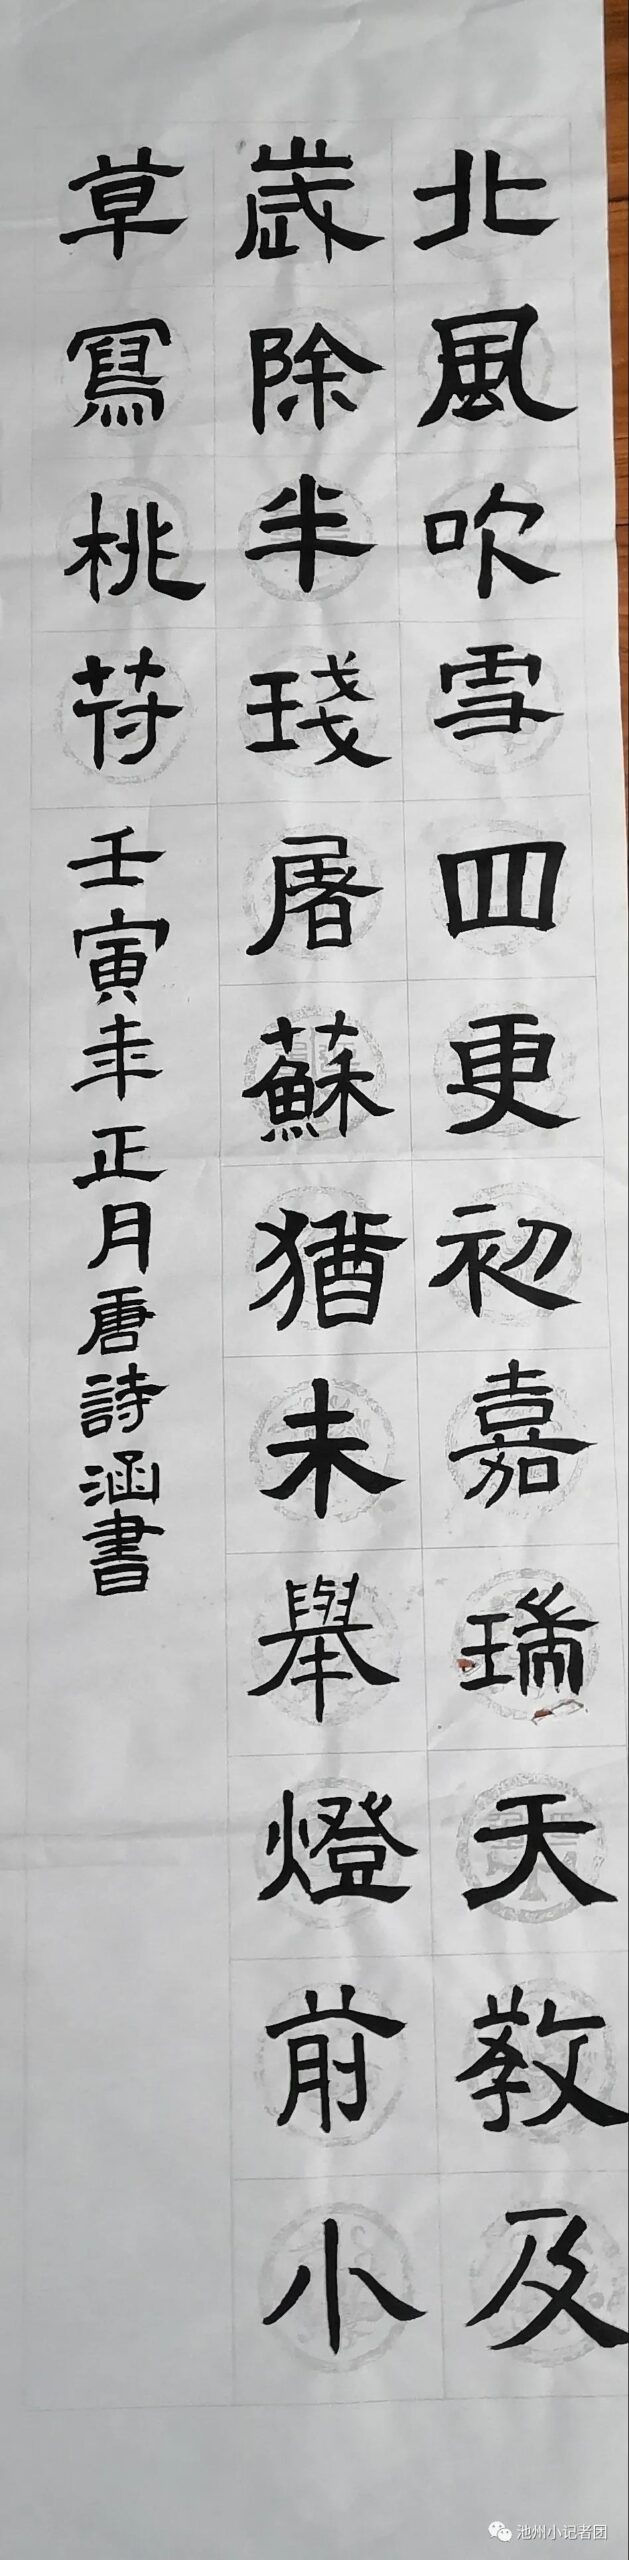 北風吹雪四更初嘉瑞天教及
歲除半琖屠蘇猶未舉燈前小
草寫桃符
壬寅年正月唐詩涵書
池州小记者团